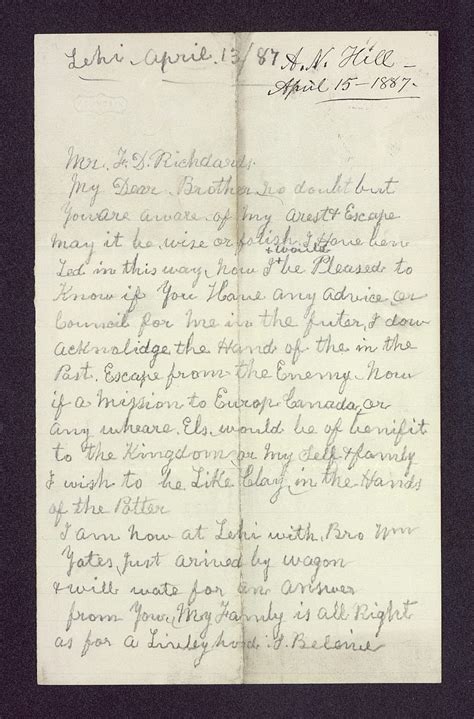 Lehi April 13/87
A. N. Hill -
April 15 - 1887.
Mr. F. D. Richdards.
My Dear Brother no doubt but
You are aware of My arest & Escape
May it be wise or folish I Have ben
& would
Led in this way Now I be Pleased to
Know if You Have any Advice or
Council for Me in the futer I dow
acknolidge the Hand of the in the
Past Escape from the Enemy. Now
if a Mission to Europ Canada or
any wheare Els would be of benifit
to the Kingdom or My Self & family
I wish to be Like Clay in the Hands
of the Potter
I am Now at Lehi with Bro Wm
Yates Just arived by wagon
& will wate for an answer
from You My Family is all Right
as for a Liveleyhod. I Beleive